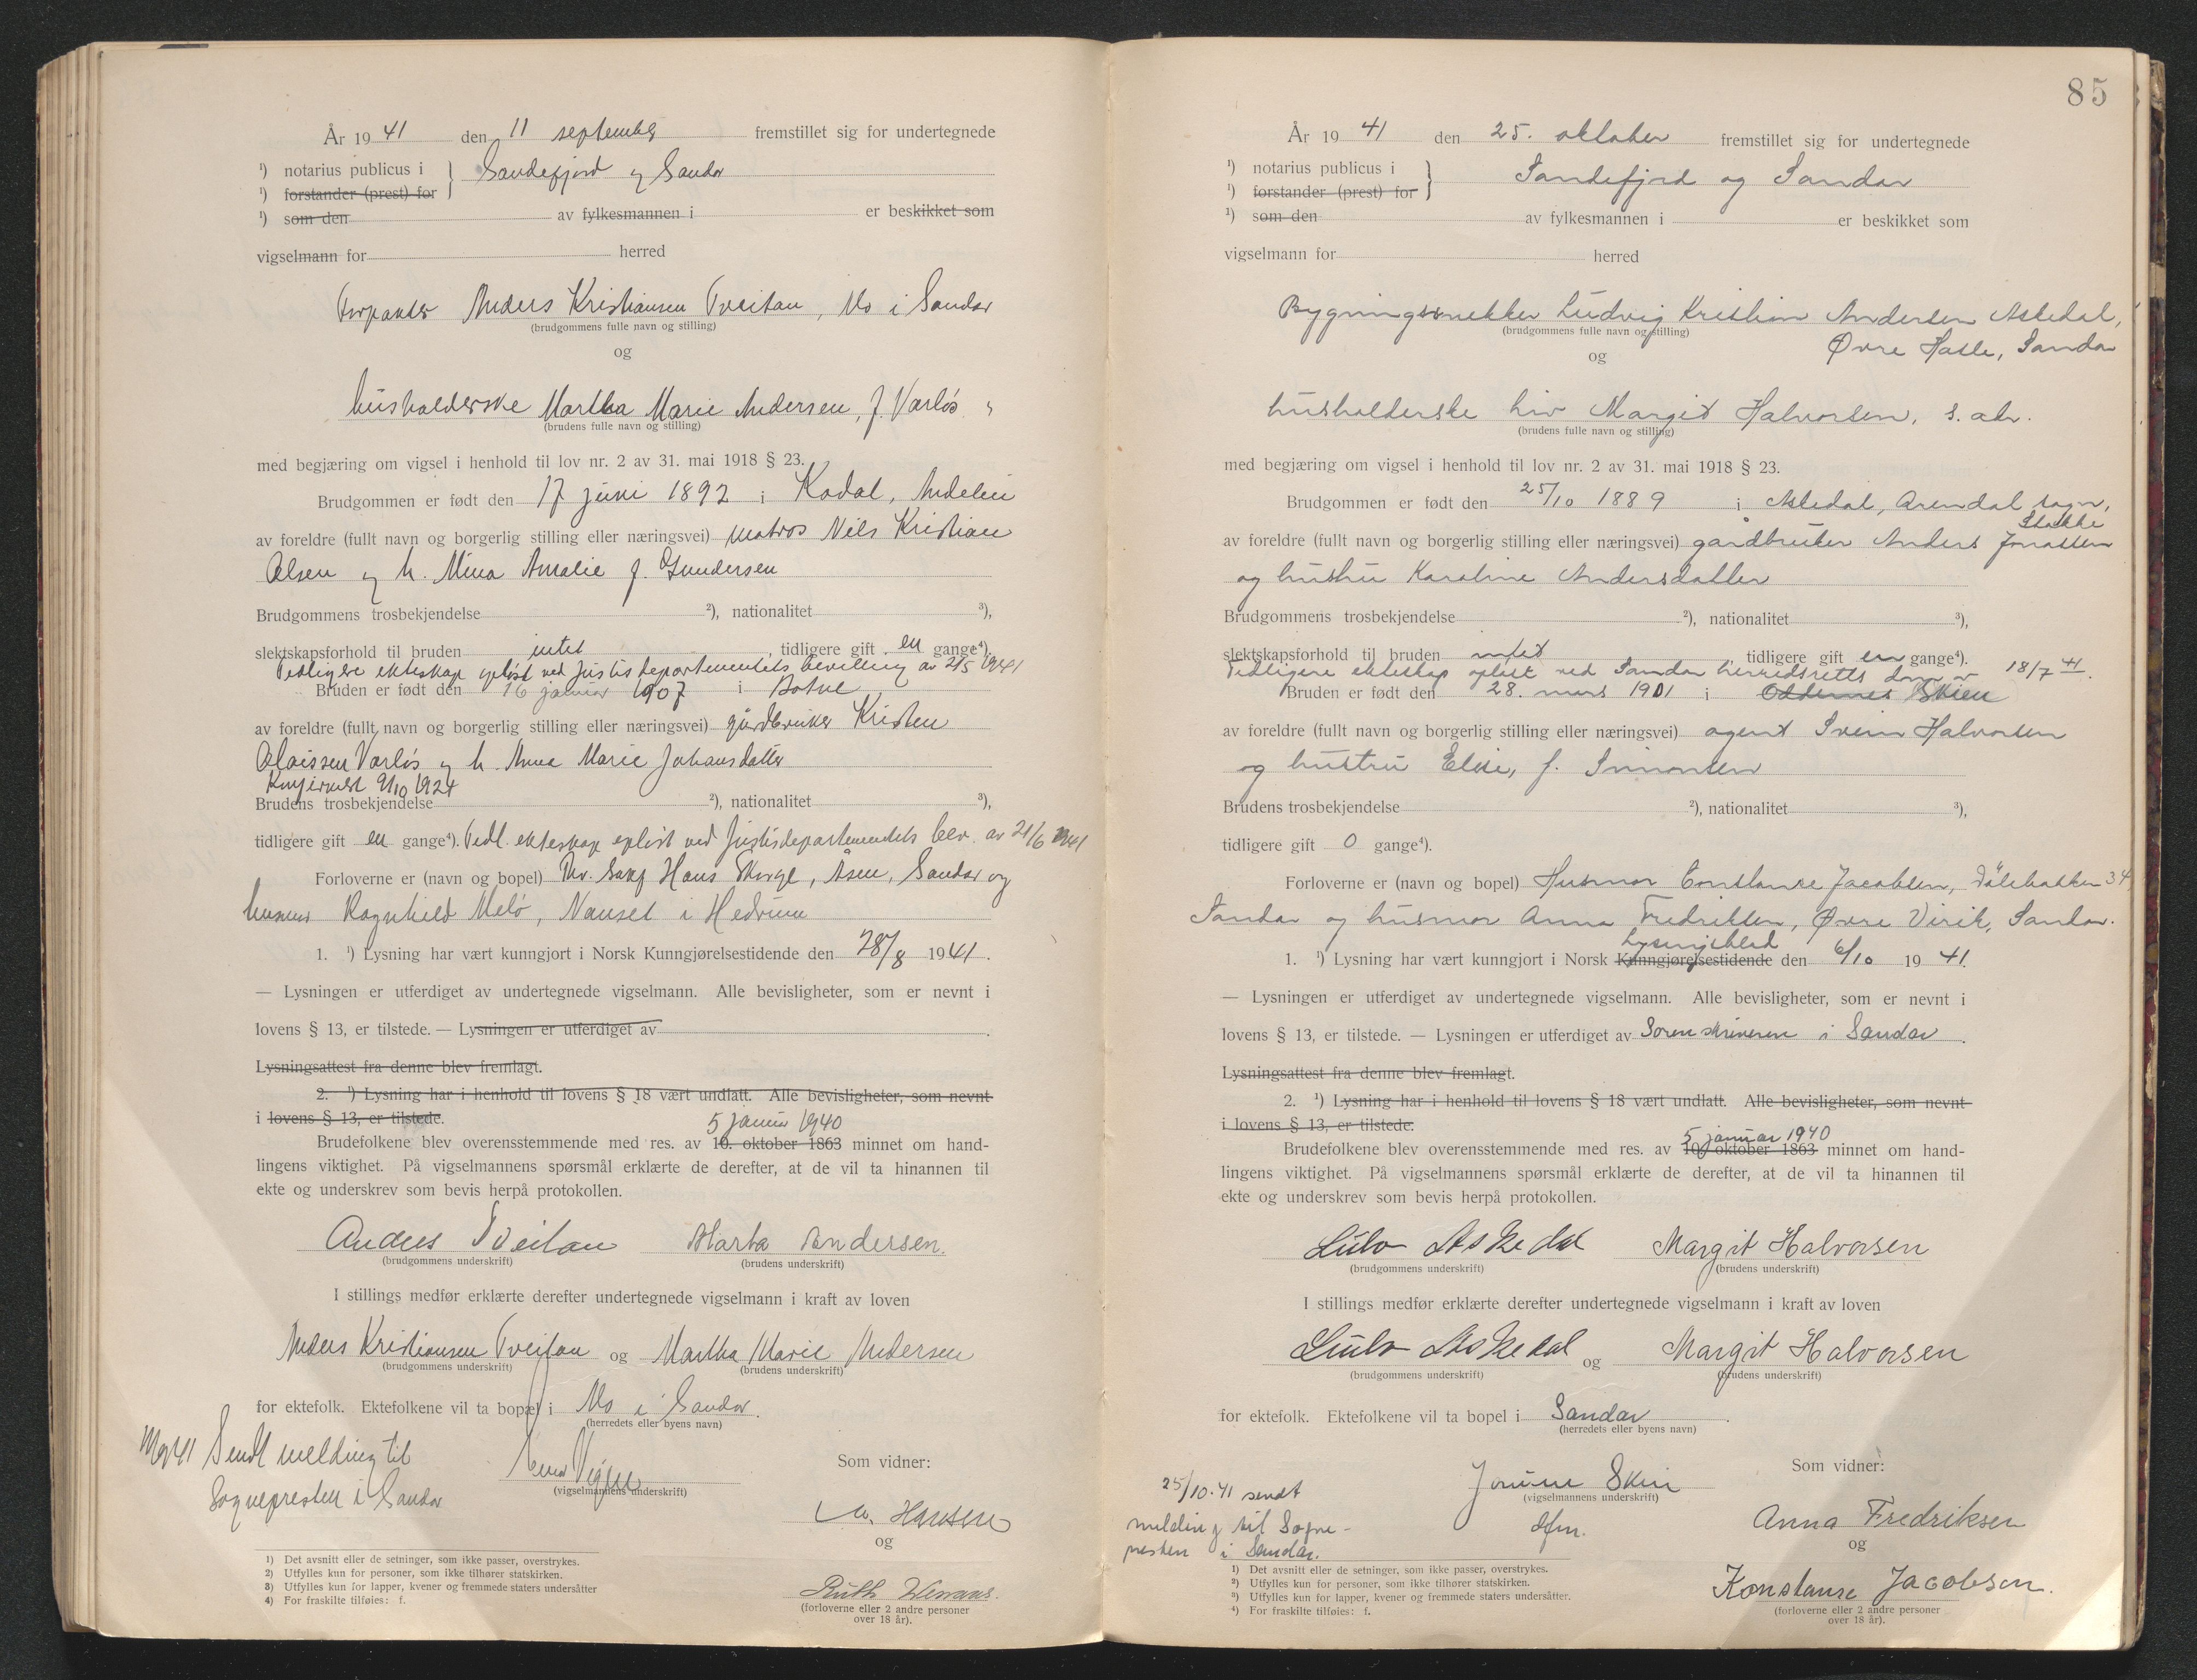 År 1941 den 11 september fremstillet sig for undertegnede
¹) notarius publicus i } Sandefjord og Sandar
¹) forstander (prest) for
¹) som den av fylkesmannen i er beskikket som
vigselmann for herred
Anders Kristiansen Tveitan, Mo i Sandar
(brudgommens fulle navn og stilling)
og
husholderske Martha Marie Andersen, f. Varløs. "
(brudens fulle navn og stilling)
med begjæring om vigsel i henhold til lov nr. 2 av 31. mai 1918 § 23.
Brudgommen er født den 17 juni 1892 i Kodal, Andebu
av foreldre (fullt navn og borgerlig stilling eller næringsvei) matros Nils Kristian
Olsen og h. Mina Amalie f. Gundersen
Brudgommens trosbekjendelse ²), nationalitet ³),
slektskapsforhold til bruden intet, tidligere gift en gange⁴).
Tidligere ekteskap opløst ved Justisdepartementets bevilling av 2/5 1941
Bruden er født den 16 januar 1907 i Botne
av foreldre (fullt navn og borgerlig stilling eller næringsvei) gårdbruker Kristen
Olaissen Varløs og h. Anna Marie Johansdatter
Konfirmert 9/10 1924
Brudens trosbekjendelse ²), nationalitet ³),
tidligere gift en gange⁴). Tidl. ekteskap opløst ved Justisdepartementets bev. av 21/6 1941
Forloverne er (navn og bopel) Hans Skorge, Åsen, Sandar og
husmor Ragnhild Melø, Nauset i Hedrum
1. ¹) Lysning har vært kunngjort i Norsk Kunngjørelsestidende den 28/8 1941.
— Lysningen er utferdiget av undertegnede vigselmann. Alle bevisligheter, som er nevnt i
lovens § 13, er tilstede. — Lysningen er utferdiget av
Lysningsattest fra denne blev fremlagt.
2. ¹) Lysning har i henhold til lovens § 18 vært undlatt. Alle bevisligheter, som nevnt
i lovens § 13, er tilstede.
5 januar 1940
Brudefolkene blev overensstemmende med res. av 10. oktober 1863 minnet om hand-
lingens viktighet. På vigselmannens spørsmål erklærte de derefter, at de vil ta hinannen til
ekte og underskrev som bevis herpå protokollen.
Anders Tveitan Marta Andersen.
(brudgommens underskrift) (brudens underskrift)
I stillings medfør erklærte derefter undertegnede vigselmann i kraft av loven
Anders Kristiansen Tveitan og Martha Marie Andersen
(brudgommens underskrift) (brudens underskrift)
for ektefolk. Ektefolkene vil ta bopel i Mo i Sandar.
(herredets eller byens navn)
Sendt melding til
Sognepresten i Sandar
(vigselmannens underskrift)
Som vidner:
Hansen
og
Ruth
(forloverne eller 2 andre personer
over 18 år).
1) Det avsnitt eller de setninger, som ikke passer, overstrykes.
2) Utfylles kun for personer, som ikke tilhører statskirken.
3) Utfylles kun for lapper, kvener og fremmede staters undersåtter
4) For fraskilte tilføies: f.
85
År 1941 den 25. oktober fremstillet sig for undertegnede
¹) notarius publicus i } Sandefjord og Sandar
¹) forstander (prest) for
¹) som den av fylkesmannen i er beskikket som
vigselmann for herred
Bygningssnekker Ludvig Kristian Andersen Askedal,
(brudgommens fulle navn og stilling)
Øvre Hasle, Sandar
og
husholderske Liv Margit Halvorsen, s. adr.
(brudens fulle navn og stilling)
med begjæring om vigsel i henhold til lov nr. 2 av 31. mai 1918 § 23.
Brudgommen er født den 25/10 1889 i Askedal, Arendal sogn,
Stokke
av foreldre (fullt navn og borgerlig stilling eller næringsvei) gårdbruker Anders Jonassen
og hustru Karoline Andersdatter
Brudgommens trosbekjendelse ²), nationalitet ³),
slektskapsforhold til bruden intet, tidligere gift en gange⁴).
Tidligere ekteskap opløst ved Sandar herredsretts dom av 18/7 41.
Bruden er født den 28. mars 1901 i Oddernes Skien
av foreldre (fullt navn og borgerlig stilling eller næringsvei) agent Svein Halvorsen
og hustru Elise, f. Simonsen
Brudens trosbekjendelse ²), nationalitet ³),
tidligere gift 0 gange⁴).
Forloverne er (navn og bopel) Husmor Constanse Jacobsen, Dølebakken 34,
Sandar og husmor Anna Fredriksen, Øvre Virik, Sandar.
Lysingsblad
1. ¹) Lysning har vært kunngjort i Norsk Kunngjørelsestidende den 6/10 1941.
— Lysningen er utferdiget av undertegnede vigselmann. Alle bevisligheter, som er nevnt i
lovens § 13, er tilstede. — Lysningen er utferdiget av Sorenskriveren i Sandar.
Lysningsattest fra denne blev fremlagt.
2. ¹) Lysning har i henhold til lovens § 18 vært undlatt. Alle bevisligheter, som nevnt
i lovens § 13, er tilstede.
5 januar 1940
Brudefolkene blev overensstemmende med res. av 10. oktober 1863 minnet om hand-
lingens viktighet. På vigselmannens spørsmål erklærte de derefter, at de vil ta hinannen til
ekte og underskrev som bevis herpå protokollen.
Ludv Askedal Margit Halvorsen
(brudgommens underskrift) (brudens underskrift)
I stillings medfør erklærte derefter undertegnede vigselmann i kraft av loven
Ludv Askedal og Margit Halvorsen
(brudgommens underskrift) (brudens underskrift)
for ektefolk. Ektefolkene vil ta bopel i Sandar.
(herredets eller byens navn)
25/10-41 sendt
melding til Sogne-
presten i Sandar.
(vigselmannens underskrift)
dfm.
Som vidner:
Anna Fredriksen
og
Konstanse Jacobsen.
(forloverne eller 2 andre personer
over 18 år).
1) Det avsnitt eller de setninger, som ikke passer, overstrykes.
2) Utfylles kun for personer, som ikke tilhører statskirken.
3) Utfylles kun for lapper, kvener og fremmede staters undersåtter.
4) For fraskilte tilføies: f.